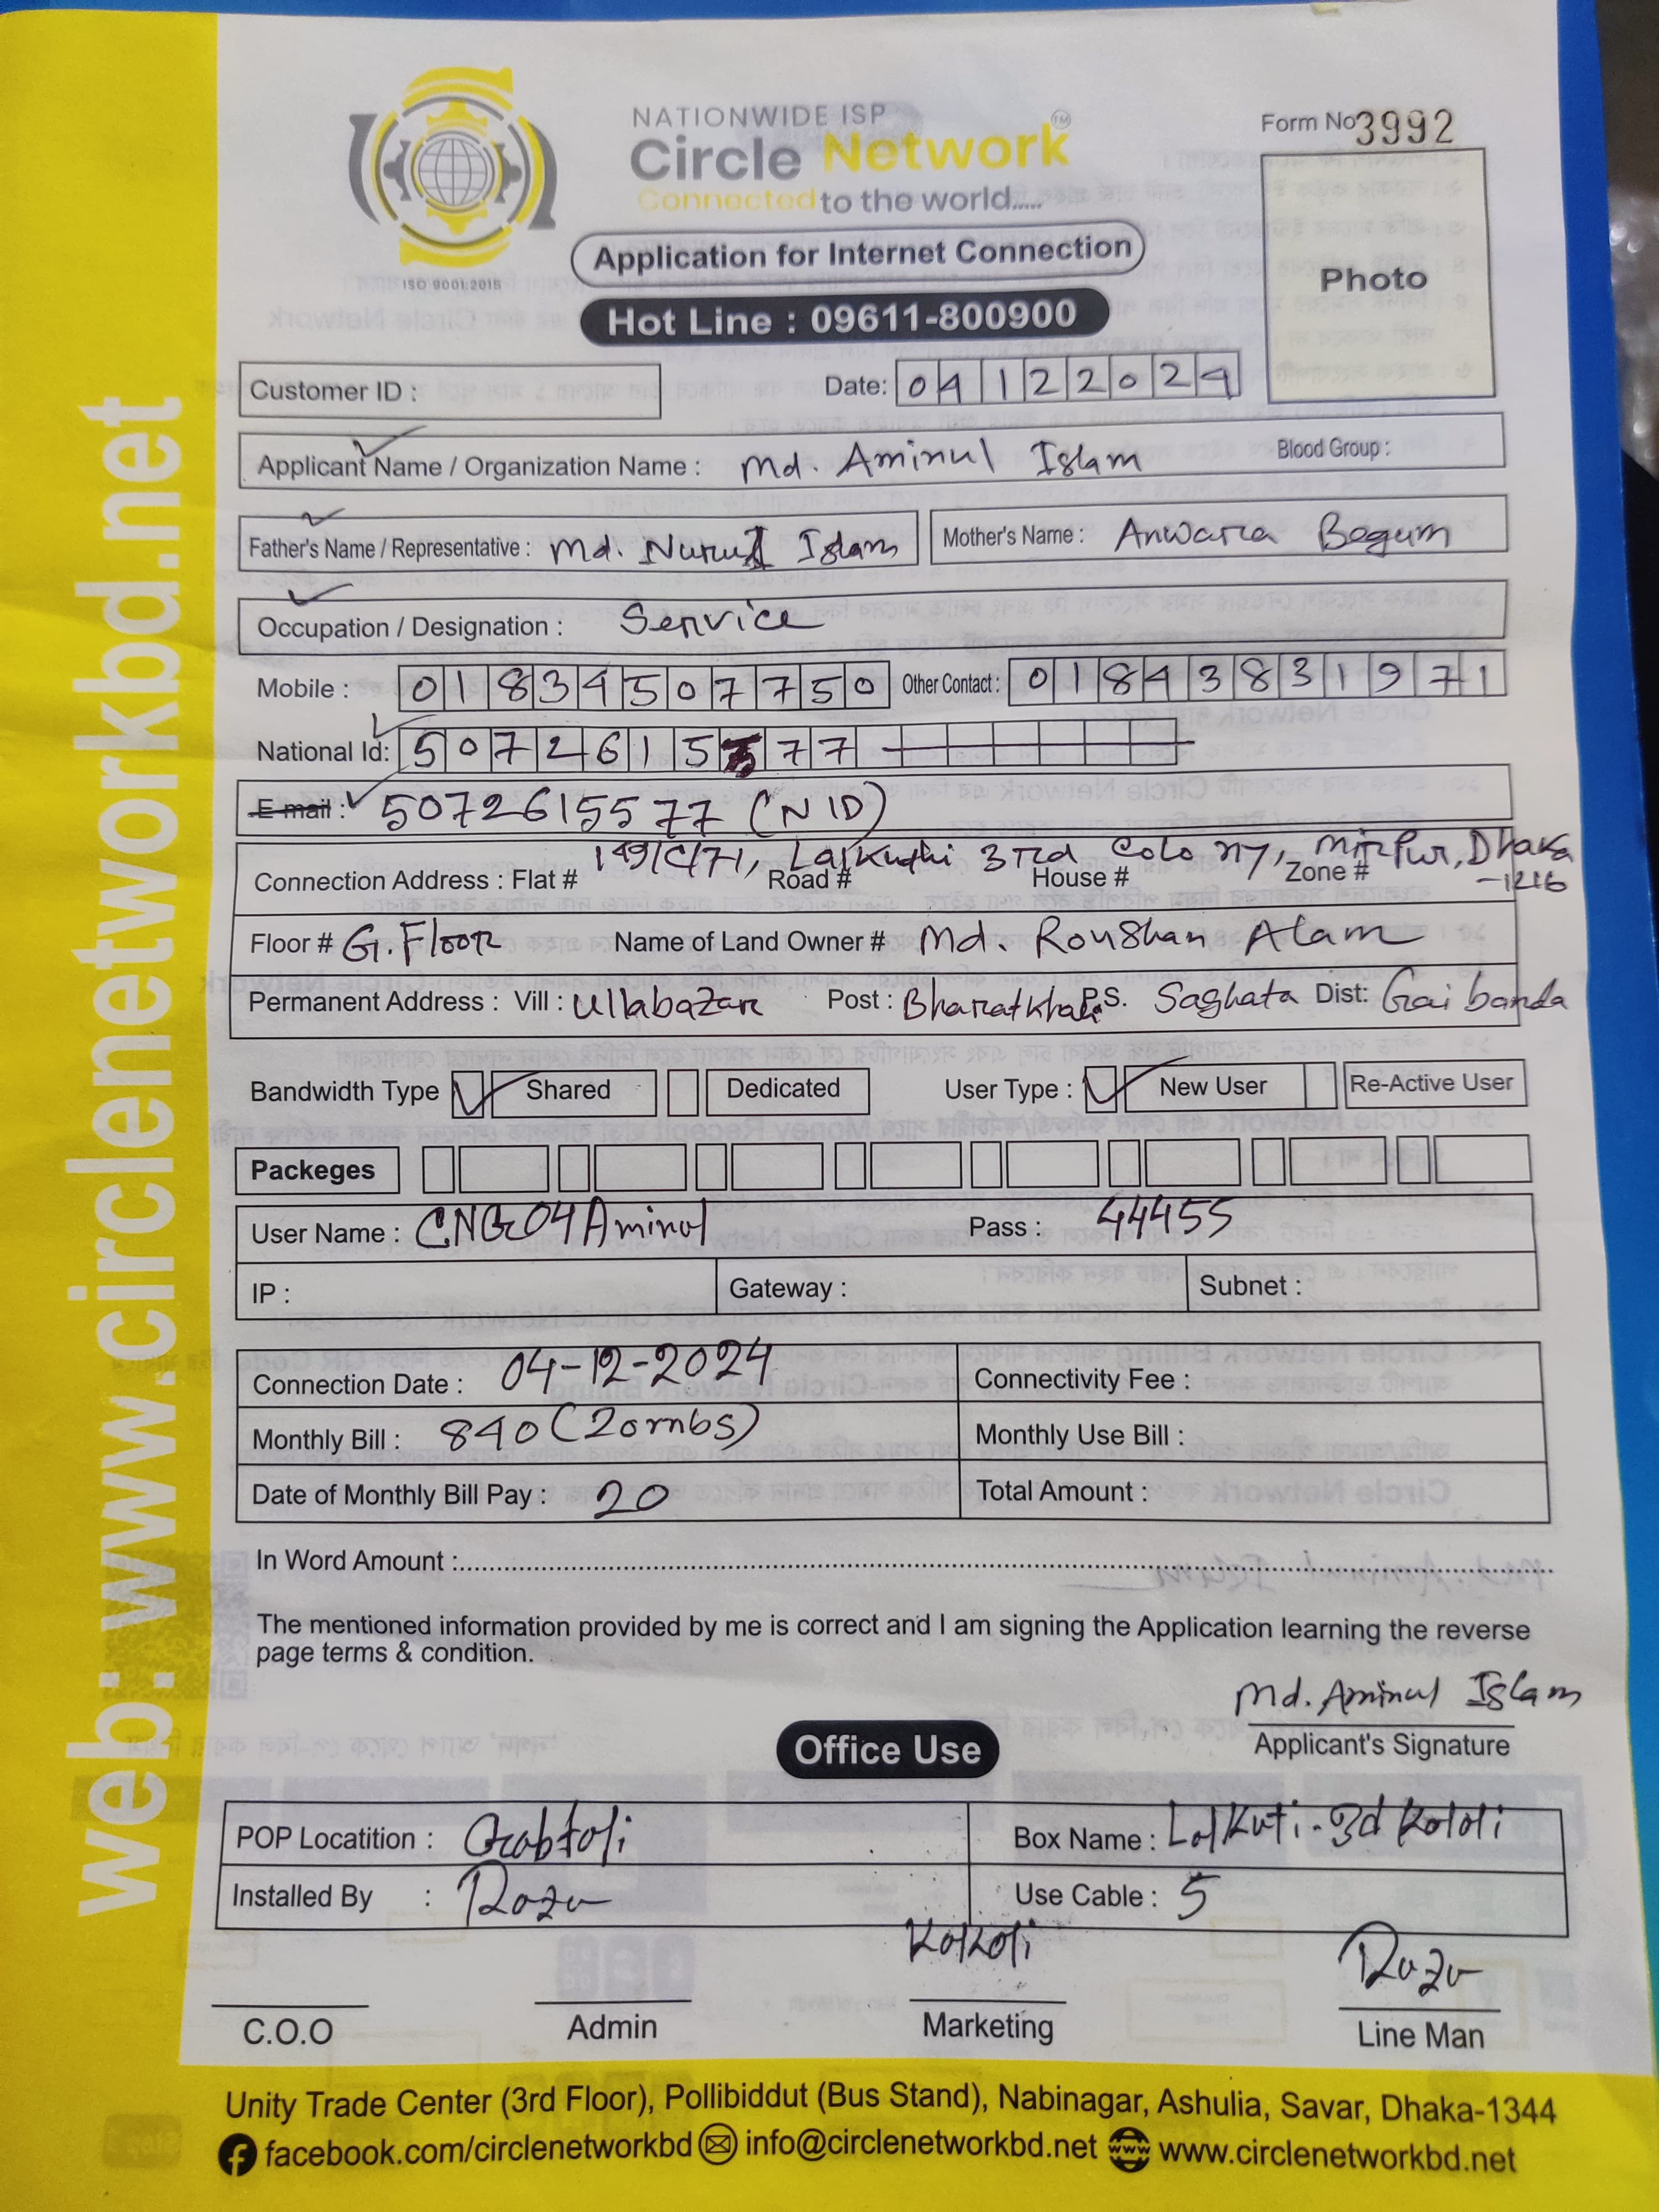 NATIONWIDE ISP
Circle Network TM
Connected to the world.....
ISO 9001:2015
Form No 3992
Application for Internet Connection
Photo
Hot Line : 09611-800900
Customer ID :
Date: 04122024
Applicant Name / Organization Name : Md. Aminul Islam Blood Group :
Father's Name / Representative : Md. Nurul Islam Mother's Name : Anwara Begum
Occupation / Designation : Service
Mobile : 01834507750 Other Contact : 01843831971
National Id: 5072615577
E-mail : 5072615577 (NID)
149/C/71, Lalkuthi 3rd Colony, Mirpur, Dhaka
Connection Address : Flat # Road # House # Zone # -1216
Floor # G. Floor Name of Land Owner # Md. Roushan Alam
Permanent Address : Vill : Ullabazar Post : Bharatkhali P.S. Saghata Dist: Gaibanda
Bandwidth Type Shared Dedicated User Type : New User Re-Active User
Packeges
User Name : CNG04Aminul Pass : 44455
IP : Gateway : Subnet :
Connection Date : 04-12-2024 Connectivity Fee :
Monthly Bill : 840 (20mbs) Monthly Use Bill :
Date of Monthly Bill Pay : 20 Total Amount :
In Word Amount :
The mentioned information provided by me is correct and I am signing the Application learning the reverse
page terms & condition.
Md. Aminul Islam
Applicant's Signature
Office Use
POP Locatition : Gabtoli Box Name : Lalkuti-3d Kololi
Installed By : Razu Use Cable : 5
Kolkoli Razu
C.O.O Admin Marketing Line Man
Unity Trade Center (3rd Floor), Pollibiddut (Bus Stand), Nabinagar, Ashulia, Savar, Dhaka-1344
facebook.com/circlenetworkbd info@circlenetworkbd.net www.circlenetworkbd.net
web: www.circlenetworkbd.net